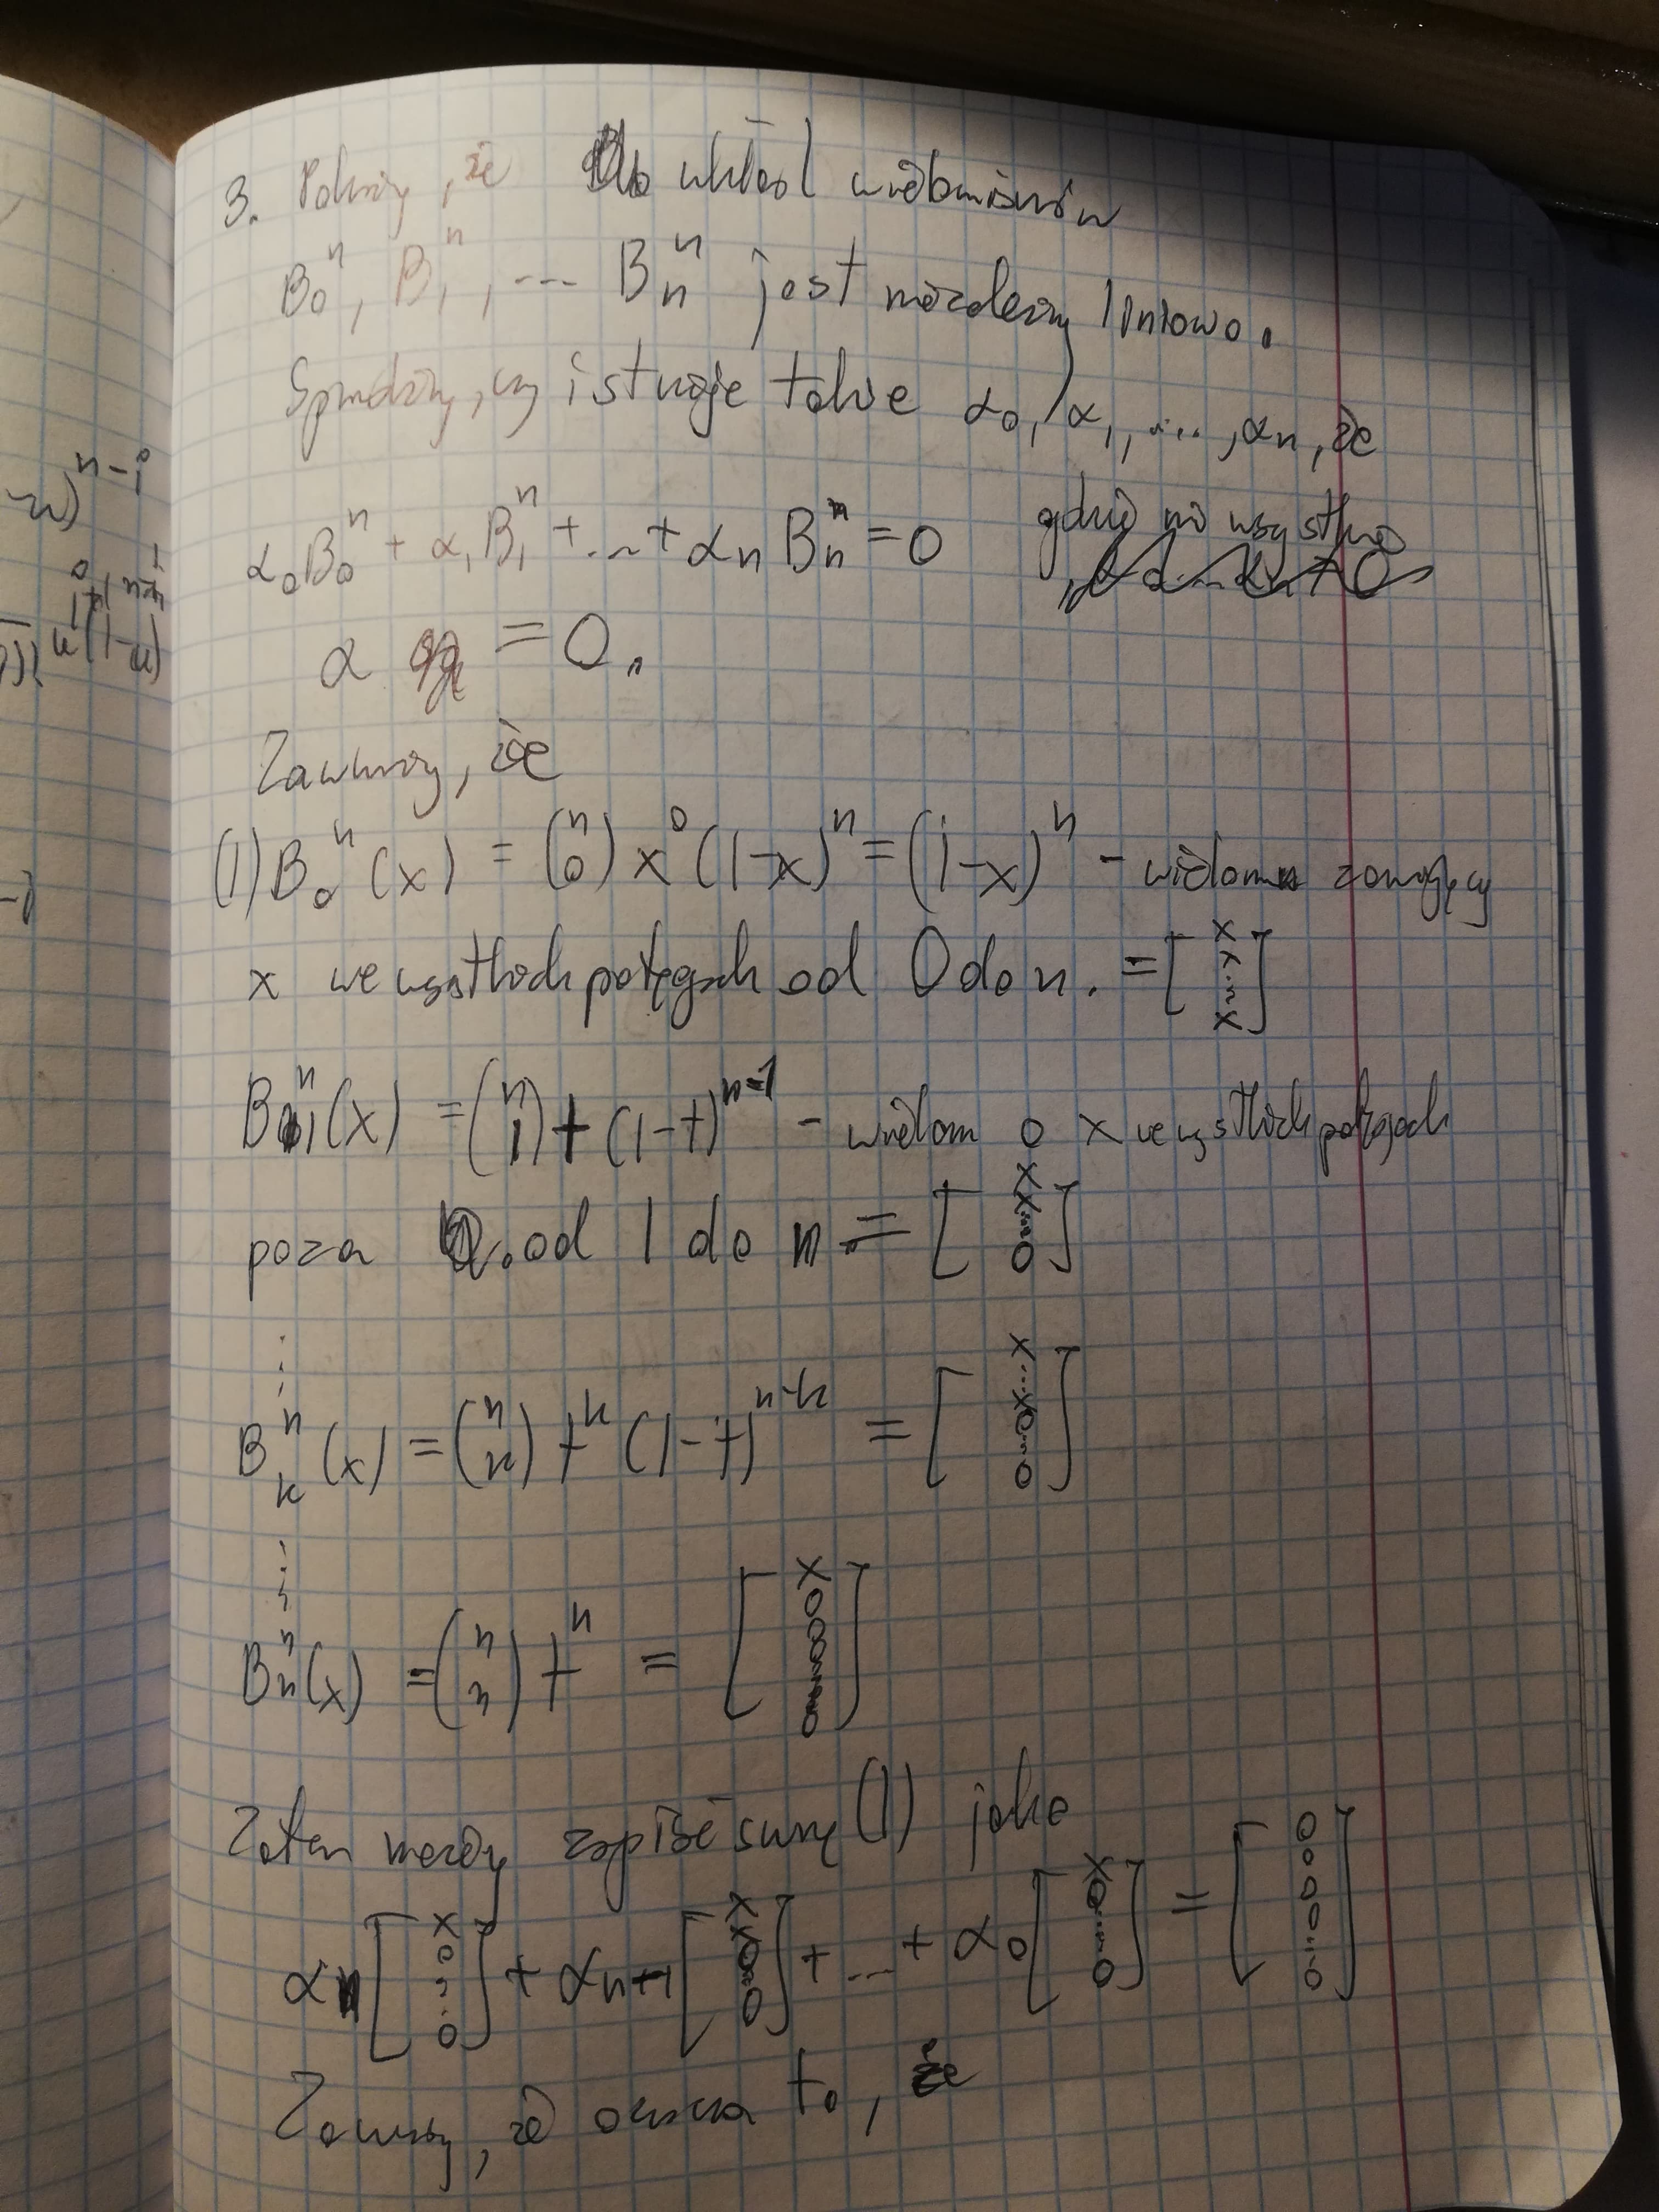 n-i
3. Pokażmy, że układ wielomianów
B₀ⁿ, B₁ⁿ, ... Bₙⁿ jest niezależny liniowo.
Sprawdźmy, czy istnieje takie α₀, α₁, ..., αₙ, że
α₀B₀ⁿ + α₁B₁ⁿ + ... + αₙBₙⁿ = 0 gdzie nie wszystkie
α = 0.
Zauważmy, że
(1) B₀ⁿ(x) = (n 0) x⁰ (1-x)ⁿ = (1-x)ⁿ - wielomian zawierający
x we wszystkich potęgach od 0 do n. = [x x ... x]
B₁ⁿ(x) = (n 1) t (1-t)ⁿ⁻¹ - wielom o x we wszystkich potęgach
poza 0. od 1 do n. = [x x ... 0]
⋮
Bₖⁿ(x) = (n k) tᵏ (1-t)ⁿ⁻ᵏ = [x ... x 0 ... 0]
⋮
Bₙⁿ(x) = (n n) tⁿ = [x 0 0 ... 0]
Zatem możemy zapisać sumę (1) jako
αₙ [x 0 ... 0] + αₙ₊₁ [x x 0 ... 0] + ... + α₀ [x 0 ... 0] = [0 0 0 0 ... 0]
Zauważmy, że oznacza to, że